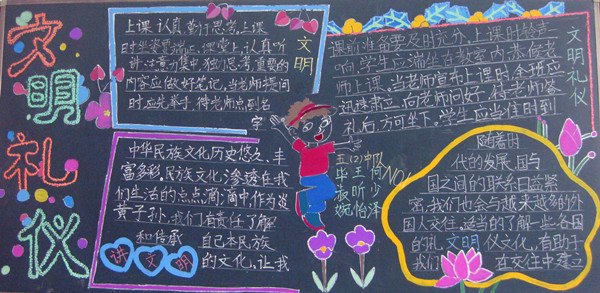 文明礼仪
上课认真,勤于思考,上课
时坐姿要端正,课堂上,认真听
讲,注意力集中,独自思考,重要的
内容应做好笔记,当老师提问
时,应先举手,待老师点到名
字
文明
课前准备要及时充分,上课时铃声
响,学生应端坐在教室内,恭候老
师上课,当老师宣布上课时,全班应
迅速肃立,向老师问好,待老师答
礼后,方可坐下,学生应当准时到
文明礼仪
中华民族文化历史悠久、丰
富多彩,民族文化渗透在我
们生活的点点滴滴中作为炎
黄子孙,我们有责任了解
和传承 自己本民族
的文化,让我
讲文明
五(2)中队
毕王何
淑昕少
婉怡泽
NO.1
随着时
代的发展,国与
国之间的联系日益紧
密,我们也会与越来越多的外
国人交往,适当的了解一些各国
的礼 文明 仪文化,有助于
我们 在交往中建立